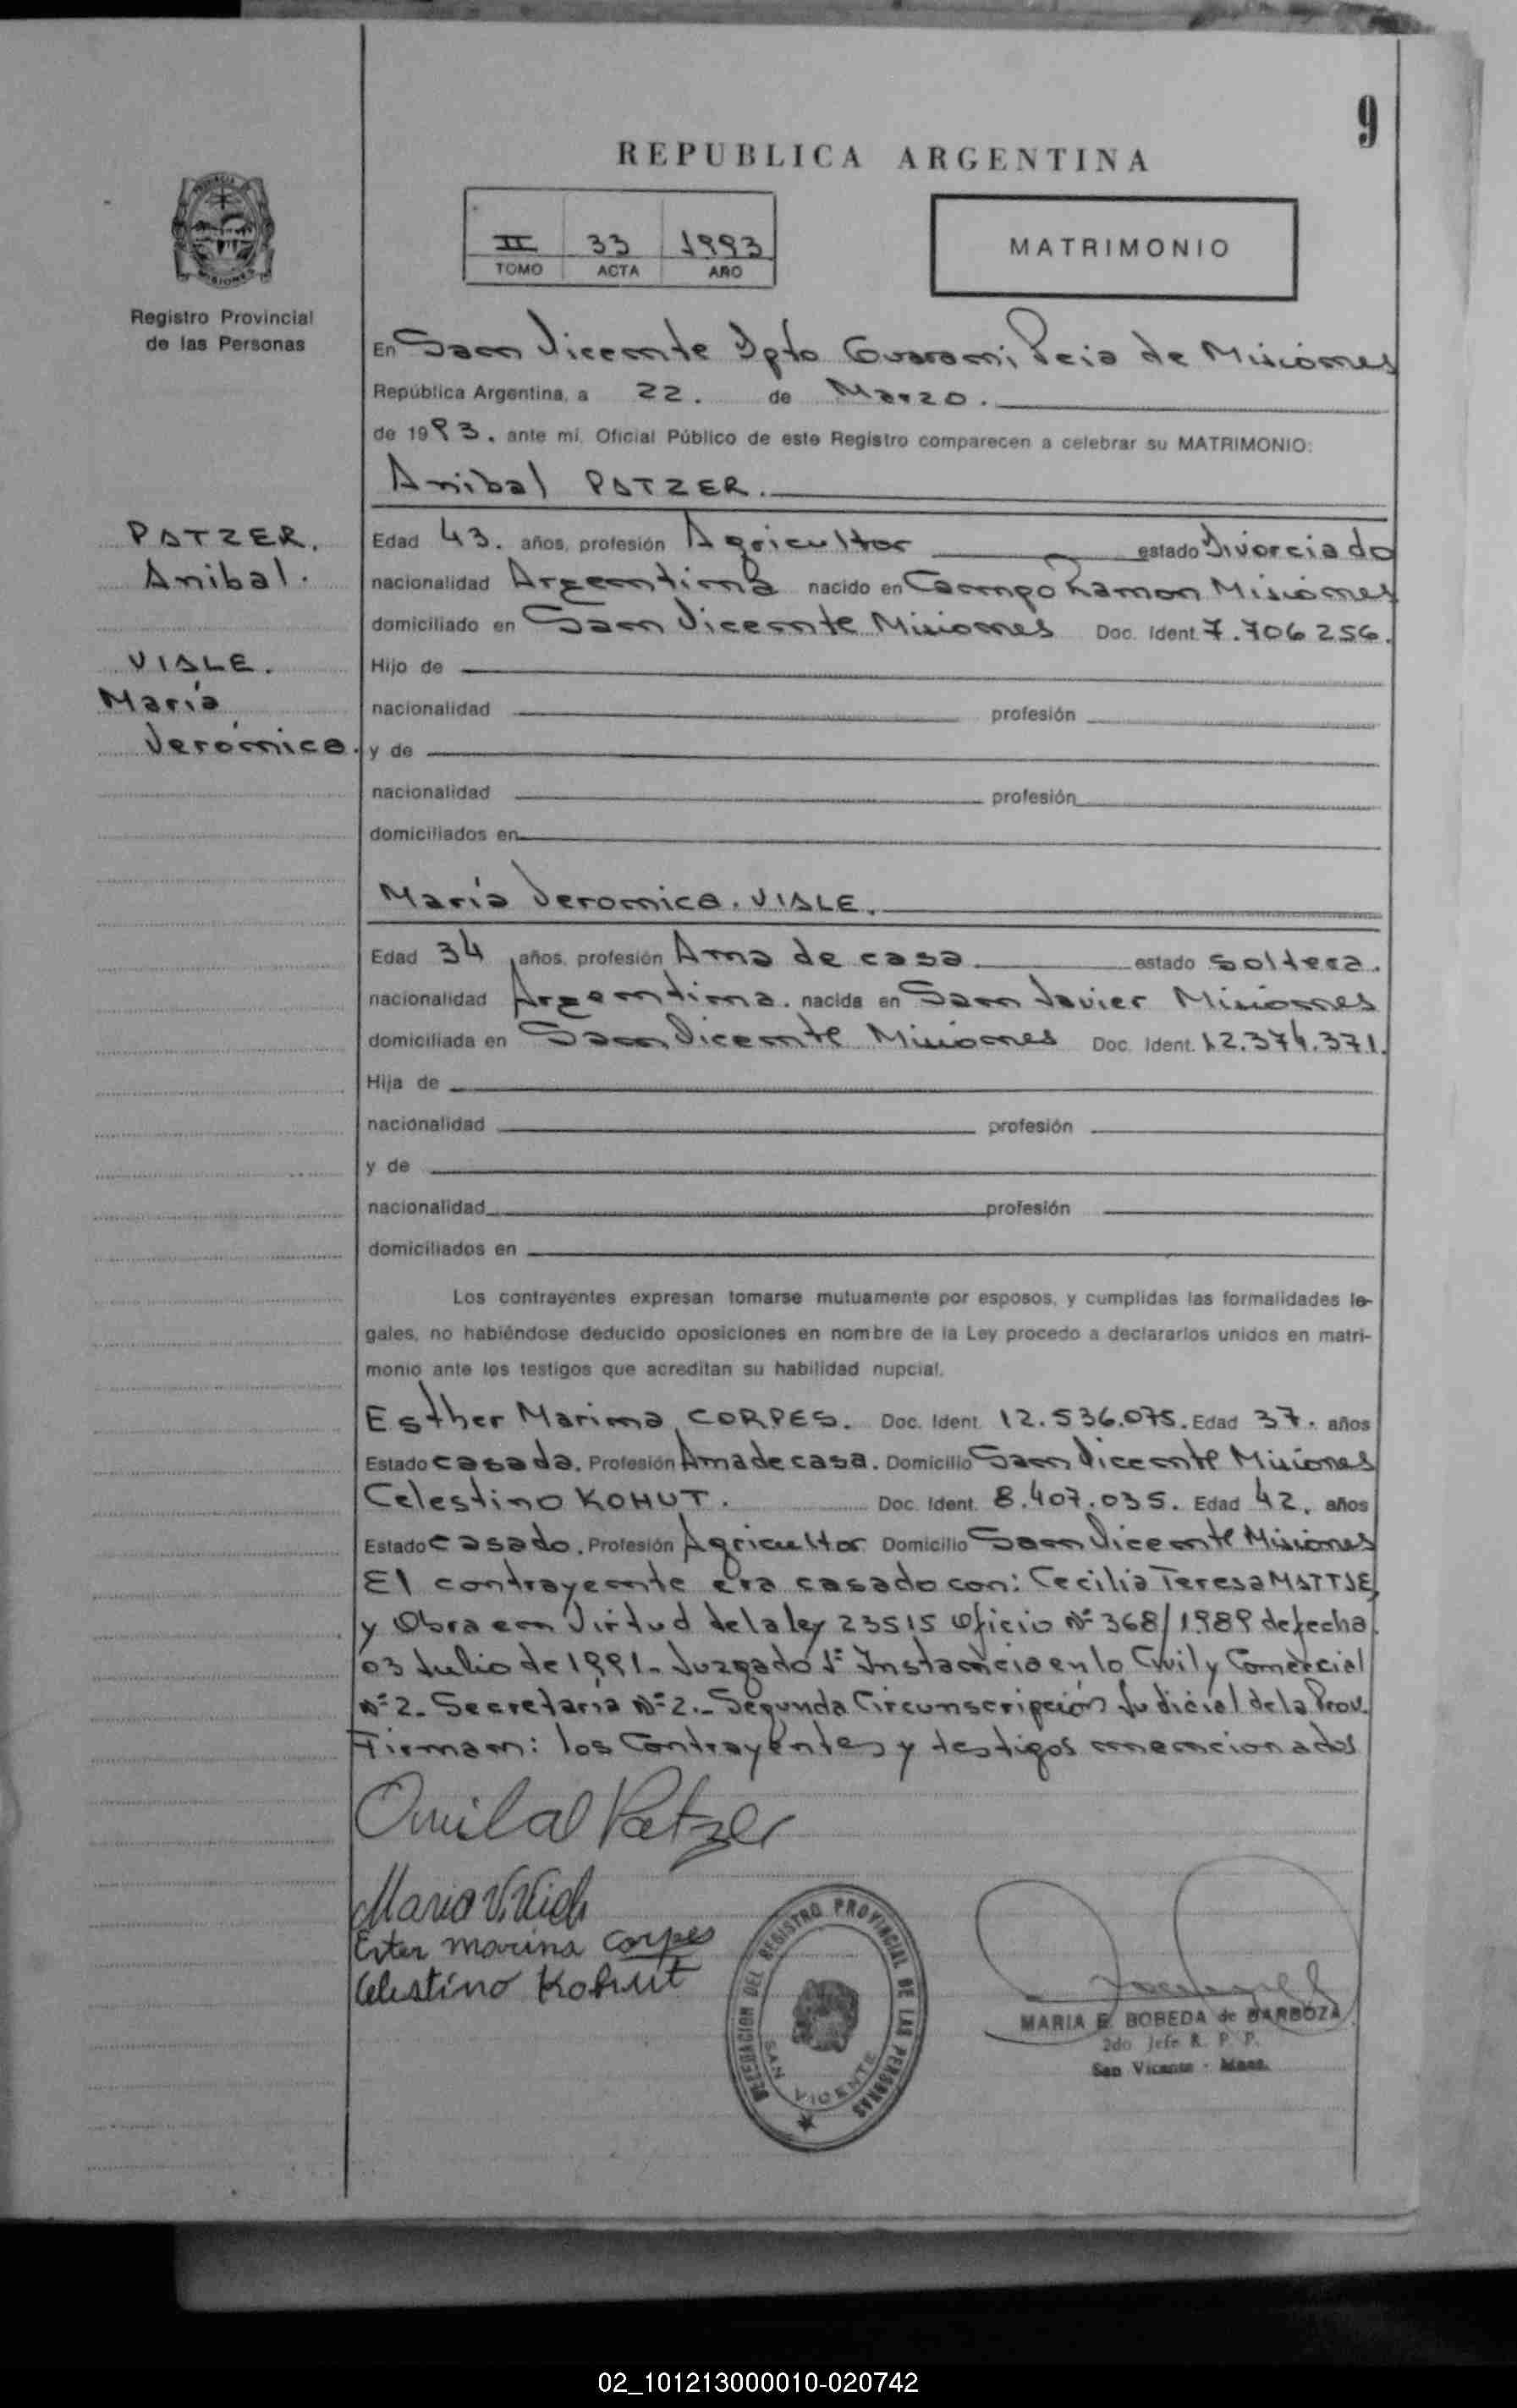 9
REPUBLICA ARGENTINA
II 33 1993
TOMO ACTA AÑO
MATRIMONIO
Registro Provincial
de las Personas
En San Vicente Dpto Guarani Pcia de Misiones
República Argentina, a 22. de Marzo.
de 1993. ante mí, Oficial Público de este Registro comparecen a celebrar su MATRIMONIO:
Anibal PATZER.
PATZER.
Anibal.
VIALE.
María
Verónica.
Edad 43. años, profesión Agricultor estado Divorciado
nacionalidad Argentina nacido en Campo Ramon Misiones
domiciliado en San Vicente Misiones Doc. Ident. 7.706 256.
Hijo de
nacionalidad profesión
y de
nacionalidad profesión
domiciliados en
María Veronica. VIALE.
Edad 34 años, profesión Ama de casa estado soltera.
nacionalidad Argentina. nacida en San Javier Misiones
domiciliada en San Vicente Misiones Doc. Ident. 12.374.371.
Hija de
nacionalidad profesión
y de
nacionalidad profesión
domiciliados en
Los contrayentes expresan tomarse mutuamente por esposos, y cumplidas las formalidades le-
gales, no habiéndose deducido oposiciones en nombre de la Ley procedo a declararlos unidos en matri-
monio ante los testigos que acreditan su habilidad nupcial.
Esther Marina CORPES. Doc. Ident. 12.536.075. Edad 37. años
Estado casada. Profesión Ama de casa. Domicilio San Vicente Misiones
Celestino KOHUT. Doc. Ident. 8.407.035. Edad 42. años
Estado casado. Profesión Agricultor Domicilio San Vicente Misiones
El contrayente era casado con: Cecilia Teresa MATTJE,
y Obra en Virtud de la ley 23515 Oficio Nº 368/1989 de fecha
03 Julio de 1991. Juzgado 1º Instancia en lo Civil y Comercial
Nº 2. Secretaría Nº 2.- Segunda Circunscripción Judicial de la Prov.
Firman: los Contrayentes y testigos mencionados
Anibal Patzer
Maria V.
Ester marina corpes
Celestino Kohut
DELEGACION DEL REGISTRO PROVINCIAL DE LAS PERSONAS
SAN VICENTE
MARIA E. BOBEDA de BARBOZA
2do Jefe R. P. P.
San Vicente - Mnes.
02_101213000010-020742